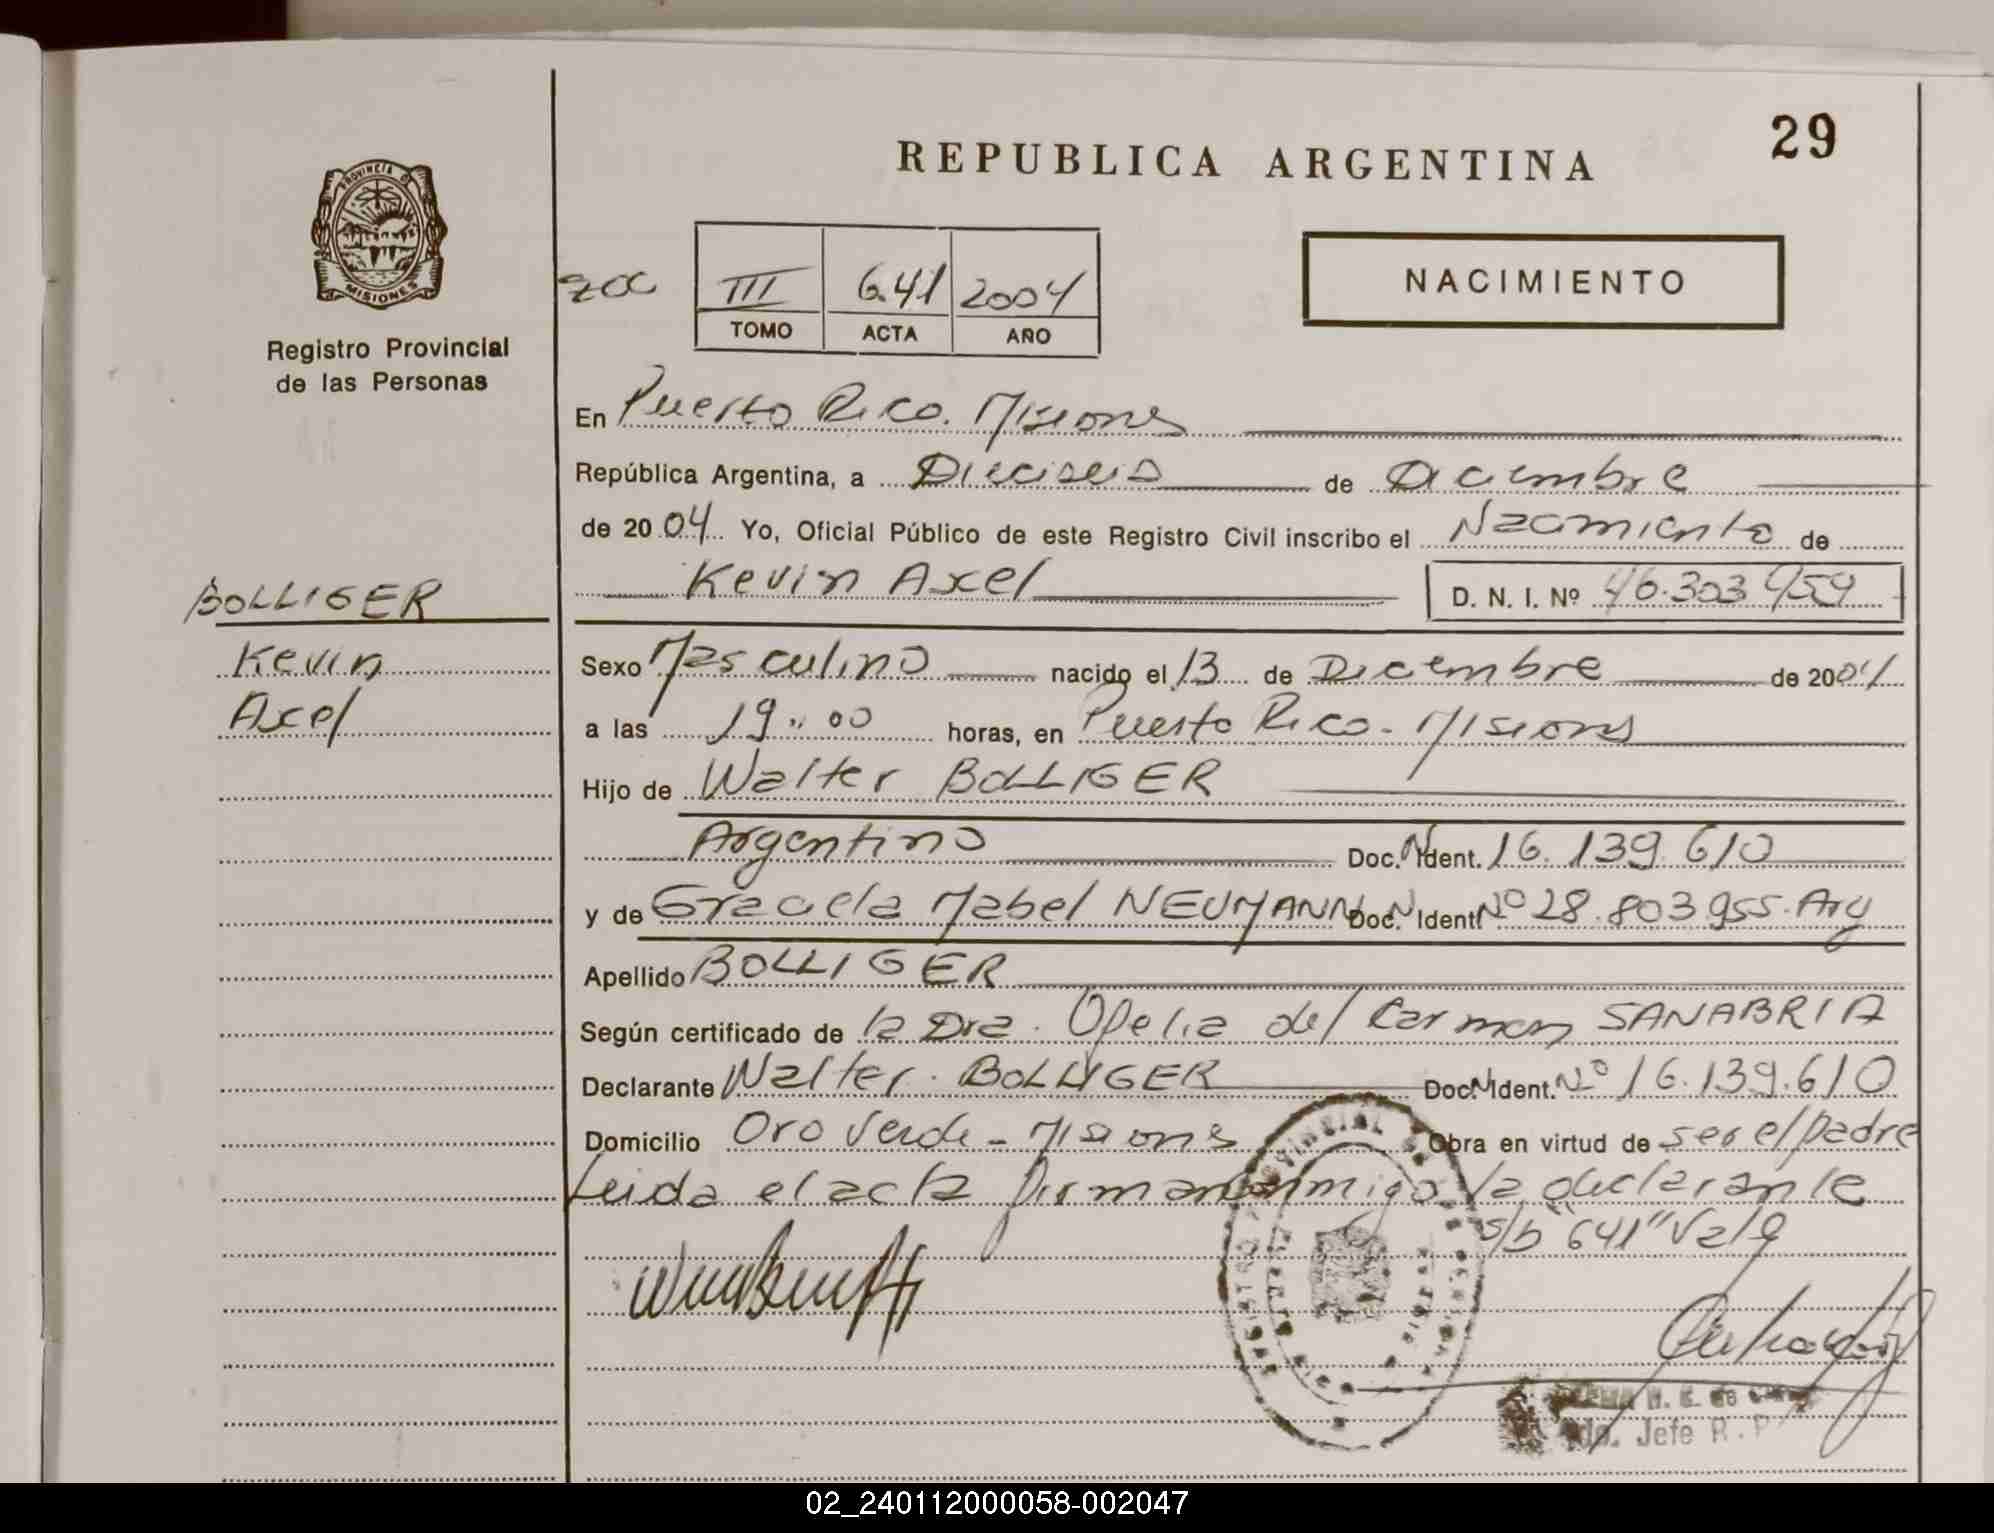 29
REPUBLICA ARGENTINA
PROVINCIA DE
MISIONES
Registro Provincial
de las Personas
III 641 2004
TOMO ACTA AÑO
NACIMIENTO
En Puerto Rico. Misiones
República Argentina, a Dieciseis de Diciembre
de 2004 Yo, Oficial Público de este Registro Civil inscribo el Nacimiento de
Kevin Axel D. N. I. Nº 46.303.959
BOLLIGER
Kevin
Axel
Sexo Masculino nacido el 13 de Diciembre de 2004
a las 19:00 horas, en Puerto Rico - Misiones
Hijo de Walter BOLLIGER
Argentino Doc. N. Ident. 16.139.610
y de Graciela Mabel NEUMANN Doc. N Ident. Nº 28.803.955. Arg
Apellido BOLLIGER
Según certificado de la Dra. Ofelia del Carmen SANABRIA
Declarante Walter. BOLLIGER Doc. N Ident. Nº 16.139.610
Domicilio Oro Verde - Misiones Obra en virtud de ser el padre
Leida el acta firman conmigo la declarante
s/b "641" Vale
Jefe R. P.
02_240112000058-002047